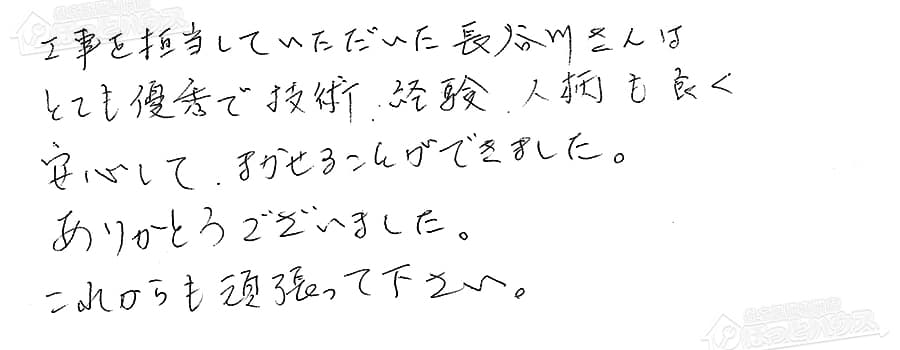 工事を担当していただいた長谷川さんは
とても優秀で技術、経験、人柄も良く
安心して、まかせることができました。
ありがとうございました。
これからも頑張って下さい。
ほっとハウス